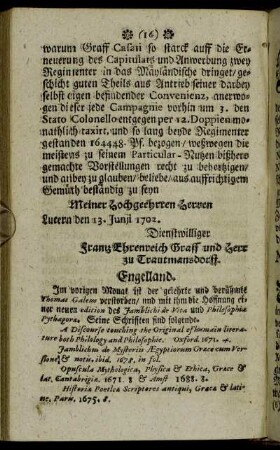 (16)
warum Graff Casati so starck auff die Er-
neuerung des Capitulats und Anwerbung zwey
Regimenter in das Mäyländische dringet/ge-
schicht guten Theils aus Antrieb seiner darbey
selbst eigen befindender Convenienz, anerwo-
gen dieser jede Campagnie vorhin um 3. den
Stato Colonello entgegen per 12. Doppien mo-
nathlich taxirt, und so lang beyde Regimenter
gestanden 164448. Pf. bezogen/ weßwegen die
meistens zu seinem Particular-Nutzen bißhero
gemachte Vorstellungen recht zu behertzigen/
und anbey zu glauben/ beliebe/ aus auffrichtigem
Gemüth beständig zu seyn
Meiner Hochgeehrten Herren
Lutern den 13. Junji 1702.
Dienstwilliger
Frantz Ehrenreich Graff und Herr
zu Trautmansdorff.
Engelland.
Im vorigen Monat ist der gelehrte und berühmte
Thomas Galem verstorben/ und mit ihm die Hoffnung ei-
ner neuen edition des Jamblichi de Vita und Philosophia
Pythagoræ. Seine Schrifften sind folgende.
A Discourse touching the Original of humain litera-
ture both Philology and Philosophie. Oxford. 1671. 4.
Jamblichus de Mysteriis Ægyptiorum Græce cum Ver-
sione & notis. ibid. 1678. in fol.
Opuscula Mythologica, Physica & Ethica, Græce &
lat. Cantabrigiæ. 1671. 8 & Amst 1688. 8.
Historiæ Poeticæ Scriptores antiqui, Græce & lati-
ne, Paris. 1675. 8.